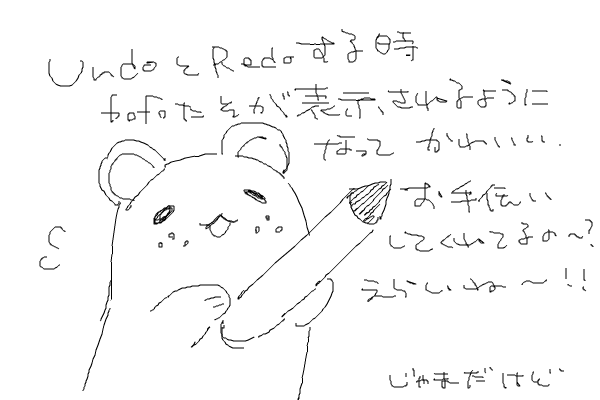 UndoとRedoする時
fofoたそが表示されるように
なって かわいい.
お手伝い
してくれてるの〜?
えらいね〜!!
じゃまだけど